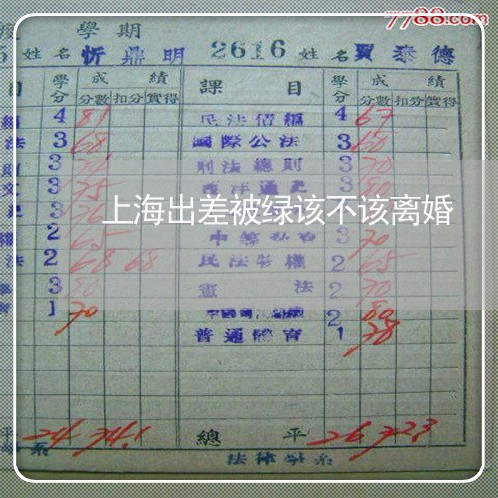 7788.com
學期
姓名 忻鼎明 2616 姓名 賈泰德
目 學分 成績 課目 學分 成績
分數 扣分 實得 分數 扣分 實得
4 81 民法債編 4 67
法 3 68 國際公法 3 60
3 刑法總則 3 70
3 75 西洋通史 3 80
3
上海出差被绿该不该离婚
2 65 3 70
法 2 68 68 民法物權 2 65
3 80 憲法 2 70
1 70 2 80
普通體育 1 78
平 24 74.1 總平 26 72.3
系 法律學系